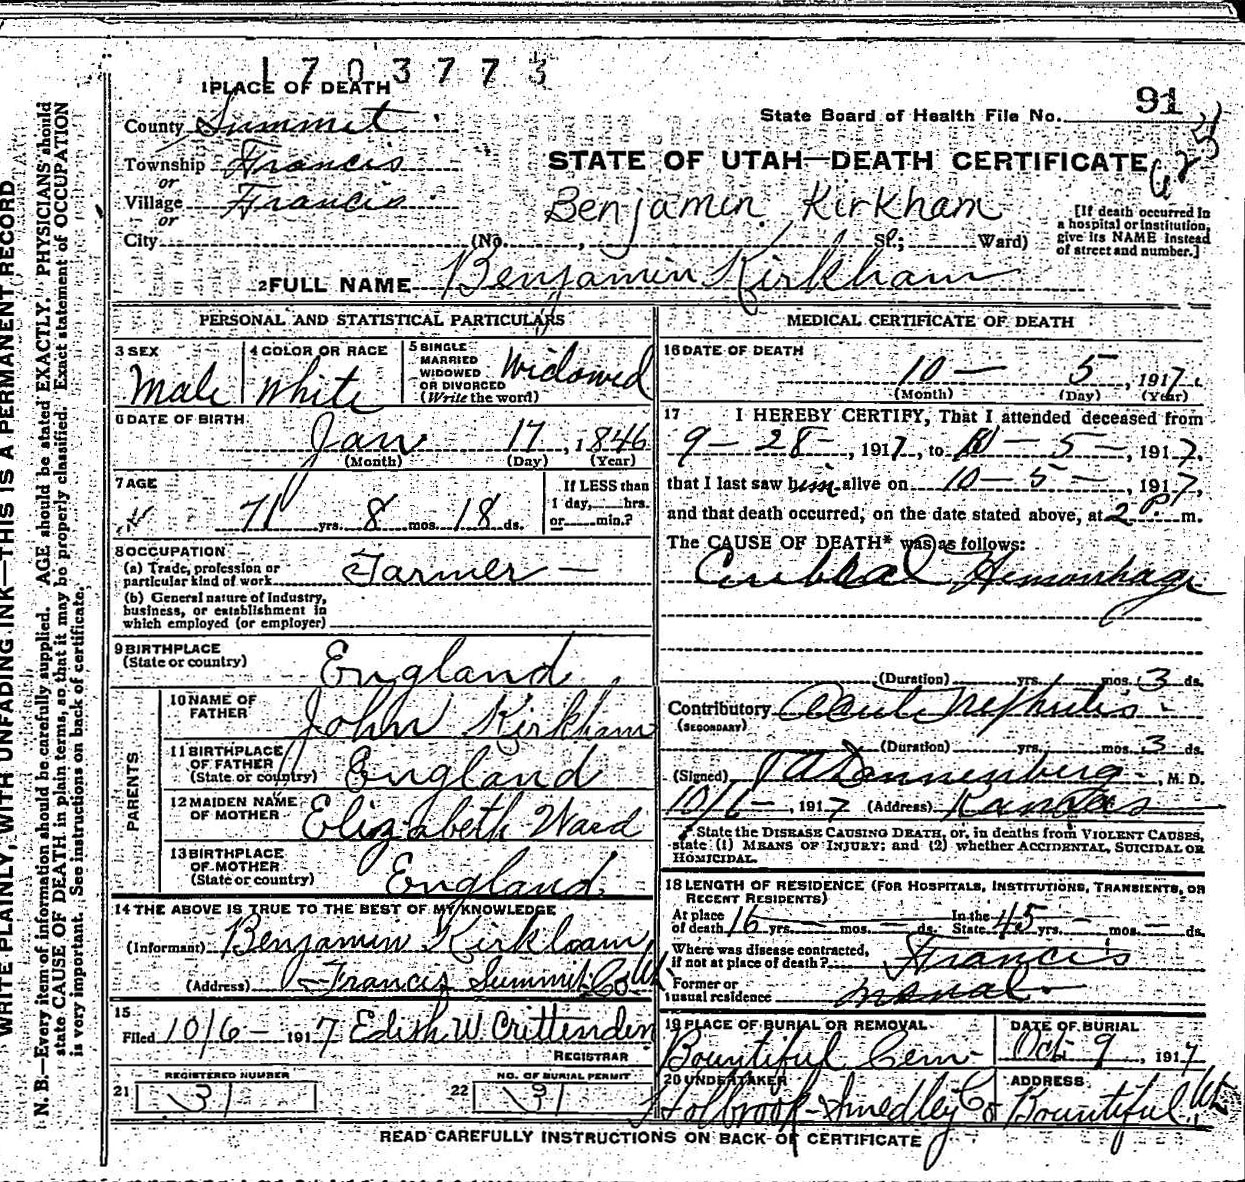 1703773
1 PLACE OF DEATH
91
State Board of Health File No.
County Summit
625
Township Francis
or
STATE OF UTAH—DEATH CERTIFICATE
Village Francis
or
Benjamin Kirkham
[If death occurred in
a hospital or institution,
give its NAME instead
of street and number.]
City (No. , St.; Ward)
2 FULL NAME Benjamin Kirkham
PERSONAL AND STATISTICAL PARTICULARS
3 SEX
Male
4 COLOR OR RACE
White
5 SINGLE
MARRIED
WIDOWED
OR DIVORCED
(Write the word)
Widowed
6 DATE OF BIRTH
Jan 17, 1846
(Month) (Day) (Year)
7 AGE
71 yrs. 8 mos. 18 ds.
If LESS than
1 day, hrs.
or min.?
8 OCCUPATION
(a) Trade, profession or
particular kind of work Farmer —
(b) General nature of Industry,
business, or establishment in
which employed (or employer)
9 BIRTHPLACE
(State or country) England
PARENTS
10 NAME OF
FATHER John Kirkham
11 BIRTHPLACE
OF FATHER
(State or country) England
12 MAIDEN NAME
OF MOTHER Elizabeth Ward
13 BIRTHPLACE
OF MOTHER
(State or country) England
14 THE ABOVE IS TRUE TO THE BEST OF MY KNOWLEDGE
(Informant) Benjamin Kirkham
(Address) Francis Summit Co Ut
15
Filed 10/6 — 1917 Edith W Crittenden
REGISTRAR
21 REGISTERED NUMBER
31
22 NO. OF BURIAL PERMIT
91
MEDICAL CERTIFICATE OF DEATH
16 DATE OF DEATH
10 — 5, 1917.
(Month) (Day) (Year)
17 I HEREBY CERTIFY, That I attended deceased from
9 — 28 —, 1917, to 10 — 5 —, 1917.
that I last saw him alive on 10 — 5 —, 1917,
and that death occurred, on the date stated above, at 2 P. m.
The CAUSE OF DEATH* was as follows:
Hemorrhage
(Duration) yrs. mos. 3 ds.
Contributory Acute Nephritis
(SECONDARY)
(Duration) yrs. mos. 3 ds.
(Signed) Dannenberg, M. D.
10/6 —, 1917 (Address) Kamas
* State the DISEASE CAUSING DEATH, or, in deaths from VIOLENT CAUSES,
state (1) MEANS OF INJURY; and (2) whether ACCIDENTAL, SUICIDAL OR
HOMICIDAL.
18 LENGTH OF RESIDENCE (FOR HOSPITALS, INSTITUTIONS, TRANSIENTS, OR
RECENT RESIDENTS)
At place
of death 16 yrs. — mos. — ds. In the
State 45 yrs. — mos. — ds.
Where was disease contracted,
if not at place of death? Francis
Former or
usual residence
19 PLACE OF BURIAL OR REMOVAL
Bountiful Cem —
DATE OF BURIAL
Oct 9, 1917
20 UNDERTAKER
Holbrook-Smedley Co
ADDRESS
Bountiful Ut
READ CAREFULLY INSTRUCTIONS ON BACK OF CERTIFICATE
WRITE PLAINLY, WITH UNFADING INK—THIS IS A PERMANENT RECORD
N. B.—Every item of information should be carefully supplied. AGE should be stated EXACTLY. PHYSICIANS should
state CAUSE OF DEATH in plain terms, so that it may be properly classified. Exact statement of OCCUPATION
is very important. See instructions on back of certificate.